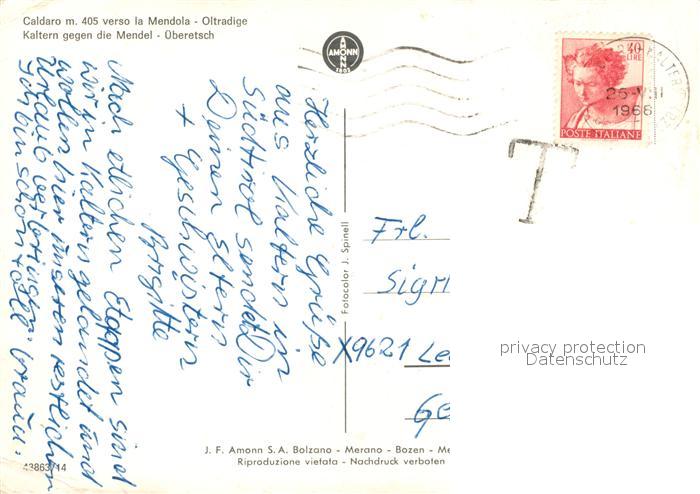 Caldaro m. 405 verso la Mendola - Oltradige
Kaltern gegen die Mendel - Überetsch
AMONN
AMONN
40
LIRE
26-VIII
1966
POSTE ITALIANE
T
Herzliche Grüße
aus Kaltern in
Südtirol sendet Dir
Deinen Eltern
+ Geschwistern
Brigitte
Nach etlichen Etappen sind
wir in Kaltern gelandet und
wollen hier unseren restlichen
Urlaub verbringen.
Ich bin schon toll braun.
Fotocolor J. Spinell
Frl.
Sigr
X9621 Le
Ge
privacy protection
Datenschutz
J. F. Amonn S.A. Bolzano - Merano - Bozen - Me
Riproduzione vietata - Nachdruck verboten
43863/14